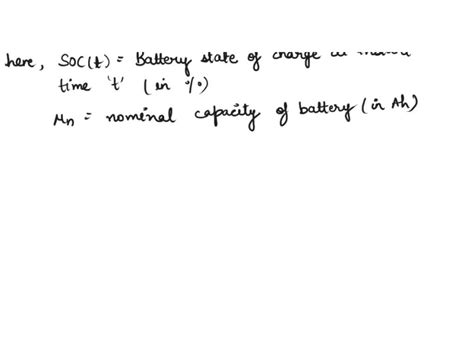 here, SOC(t) = Battery state of charge
time 't' (in %)
μn = nominal capacity of battery (in Ah)